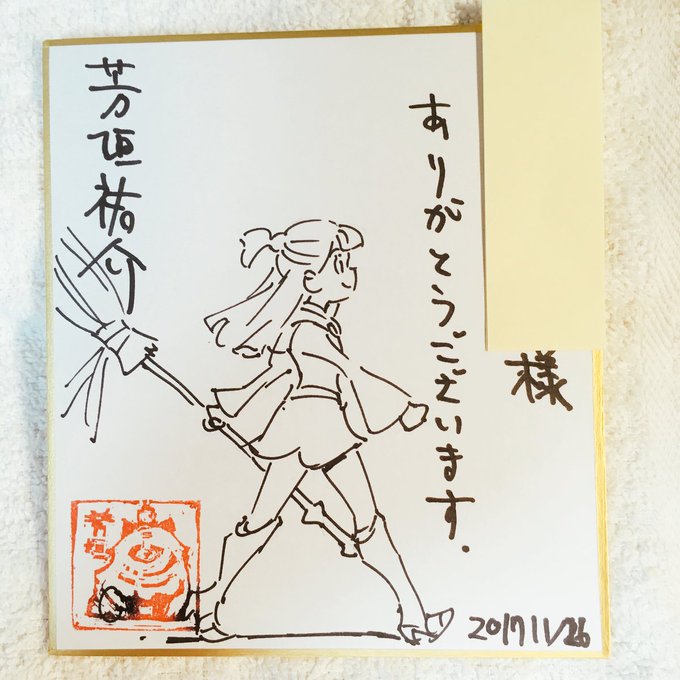 様
ありがとうございます.
芳垣祐介
2017 11/26